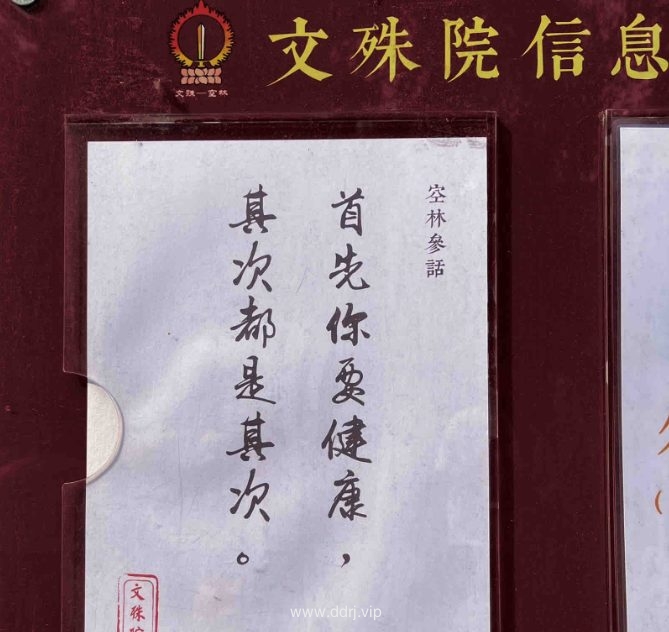 文殊院信息
文殊—空林
空林參話
首先你要健康，
其次都是其次。
文殊院
www.ddrj.vip